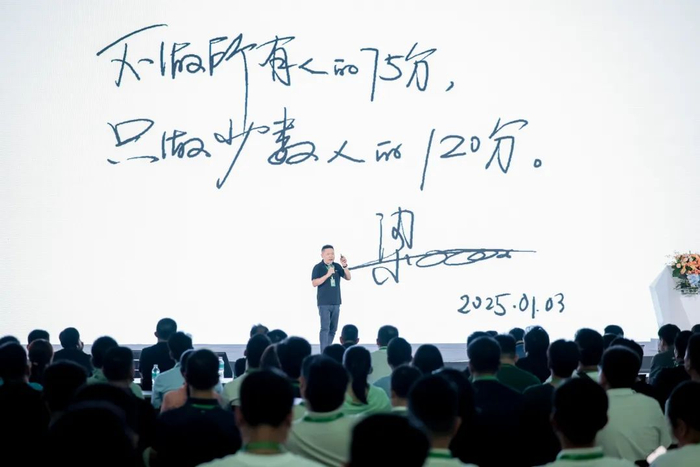 不做所有人的75分，
只做少数人的120分。
2025.01.03